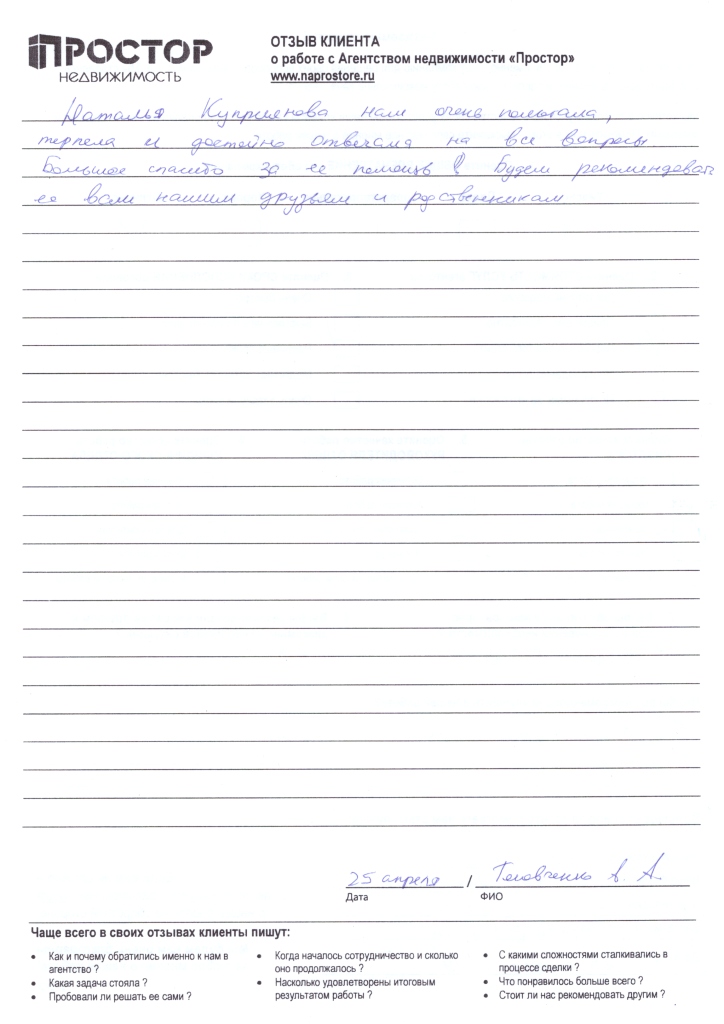 ПРОСТОР
НЕДВИЖИМОСТЬ
ОТЗЫВ КЛИЕНТА
о работе с Агентством недвижимости «Простор»
www.naprostore.ru
Наталья Куприянова нам очень помогала,
терпела и достойно отвечала на все вопросы
Большое спасибо за ее помощь! Будем рекомендовать
ее всем нашим друзьям и родственникам
25 апреля / Головченко А. А.
Дата ФИО
Чаще всего в своих отзывах клиенты пишут:
• Как и почему обратились именно к нам в
агентство ?
• Какая задача стояла ?
• Пробовали ли решать ее сами ?
• Когда началось сотрудничество и сколько
оно продолжалось ?
• Насколько удовлетворены итоговым
результатом работы ?
• С какими сложностями сталкивались в
процессе сделки ?
• Что понравилось больше всего ?
• Стоит ли нас рекомендовать другим ?